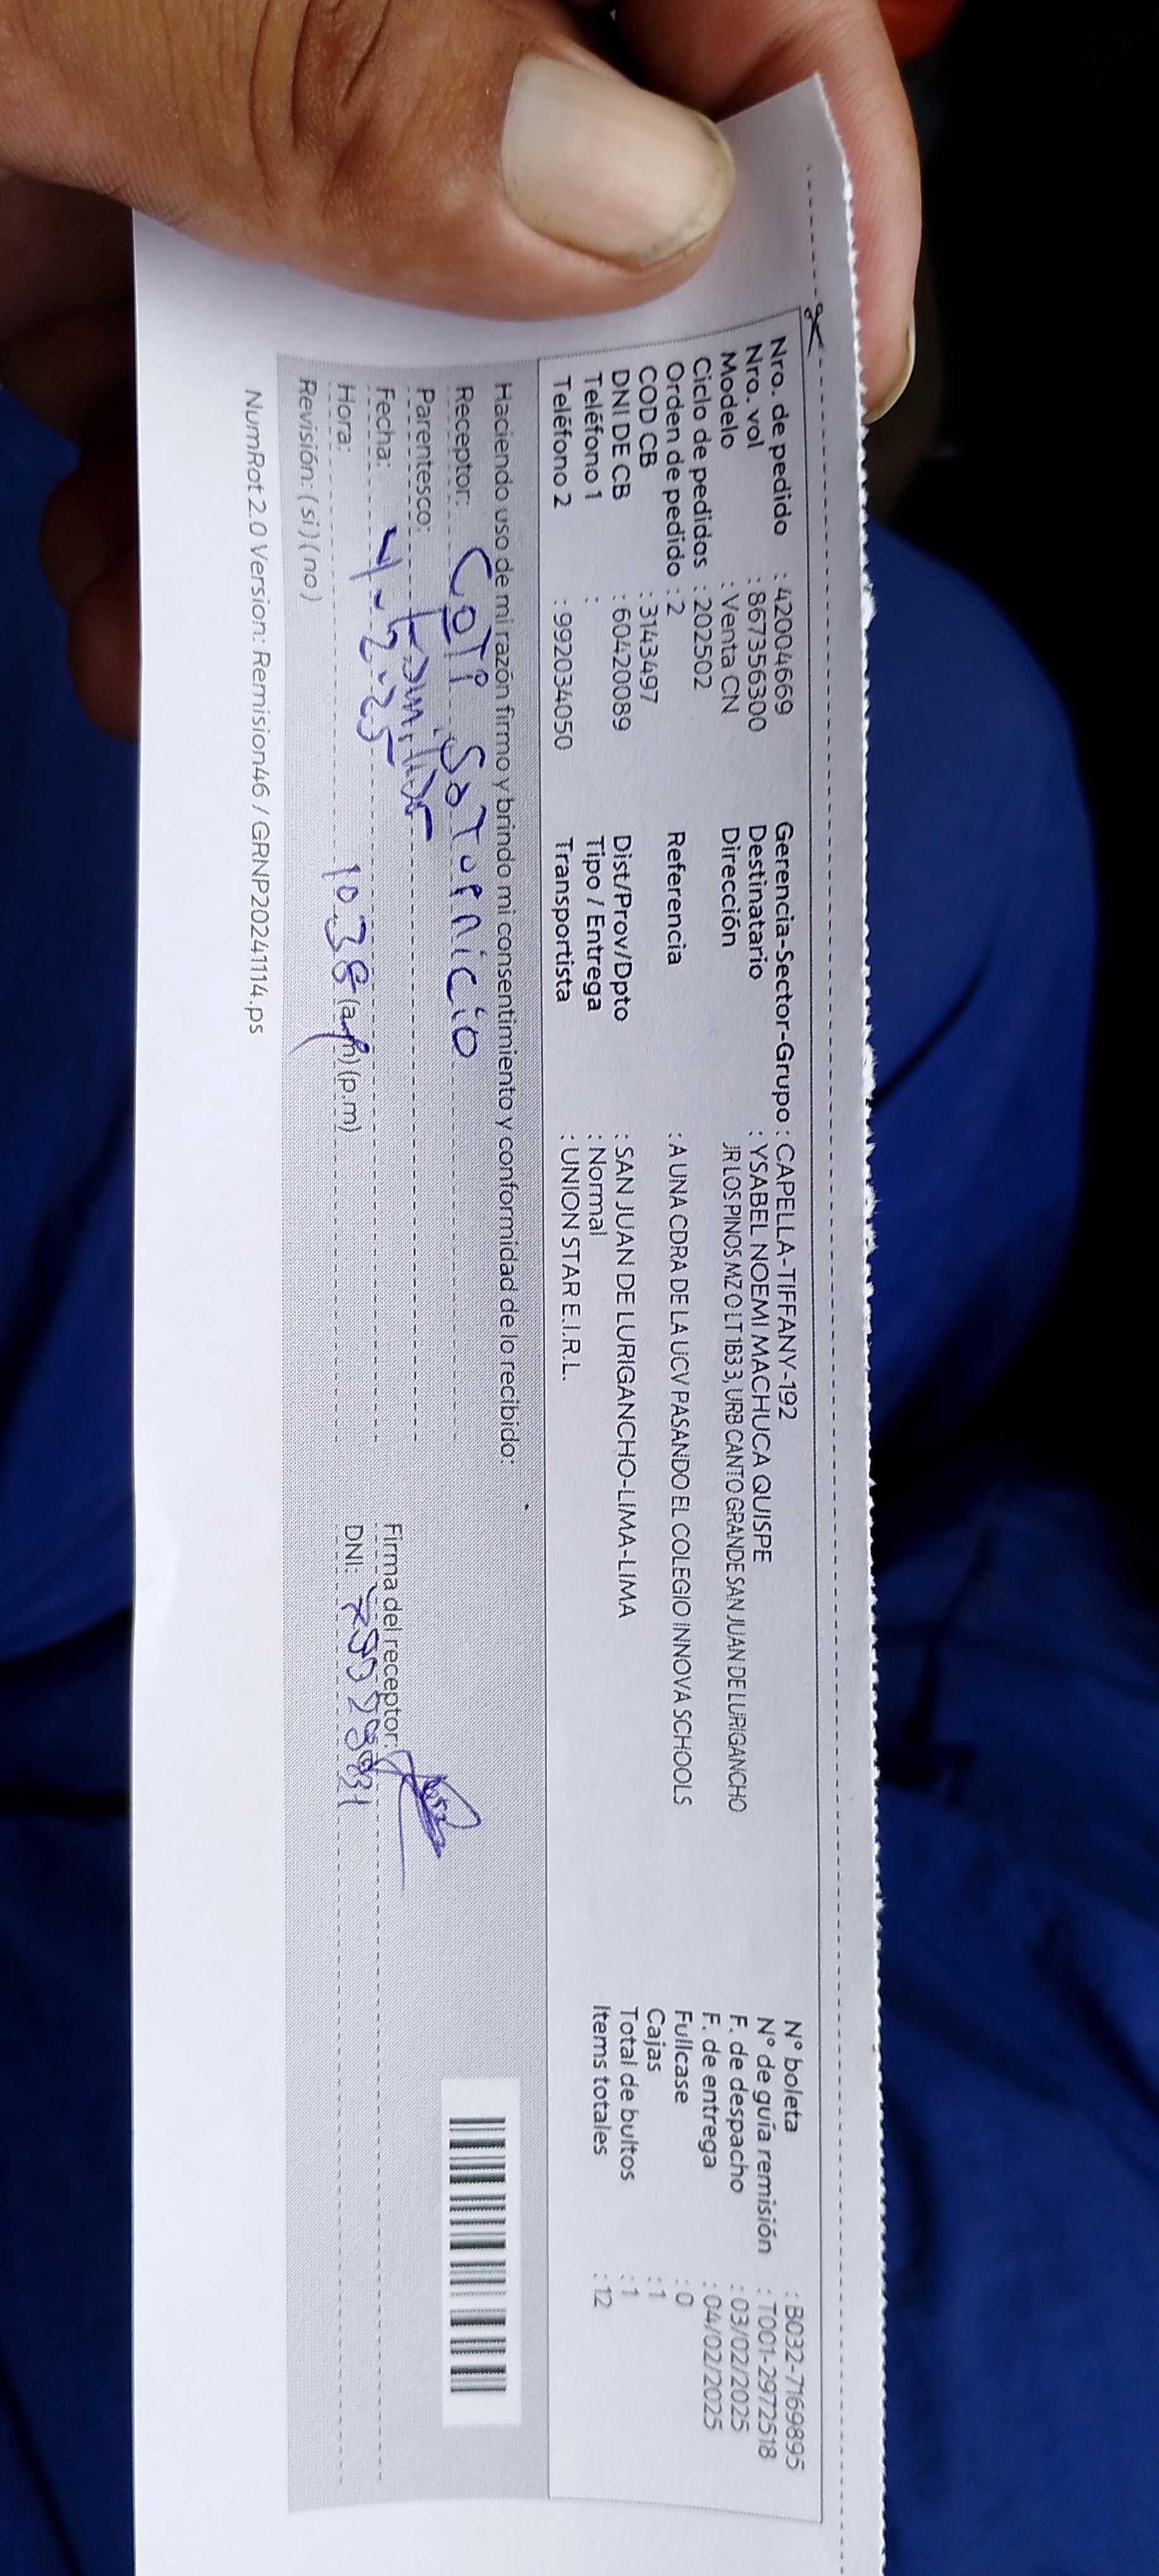 Nro. de pedido : 42004669 Gerencia-Sector-Grupo : CAPELLA-TIFFANY-192 N° boleta : B032-7169895
Nro. vol : 867356300 Destinatario : YSABEL NOEMI MACHUCA QUISPE N° de guía remisión : T001-2972518
Modelo : Venta CN Dirección JR LOS PINOS MZ O LT 1B3 3, URB CANTO GRANDE SAN JUAN DE LURIGANCHO F. de despacho : 03/02/2025
Ciclo de pedidos : 202502 F. de entrega : 04/02/2025
Orden de pedido : 2 Referencia : A UNA CDRA DE LA UCV PASANDO EL COLEGIO INNOVA SCHOOLS Fullcase : 0
COD CB : 3143497 Cajas : 1
DNI DE CB : 60420089 Dist/Prov/Dpto : SAN JUAN DE LURIGANCHO-LIMA-LIMA Total de bultos : 1
Teléfono 1 : Tipo / Entrega : Normal Items totales : 12
Teléfono 2 : 992034050 Transportista : UNION STAR E.I.R.L.
Haciendo uso de mi razón firmo y brindo mi consentimiento y conformidad de lo recibido:
Receptor: Coti Saturnicio
Parentesco: Familiar
Fecha: 4-2-25 Firma del receptor:
Hora: 10.38 (a.m) (p.m) DNI:
Revisión: (si) (no)
NumRot 2.0 Version: Remision46 / GRNP20241114.ps